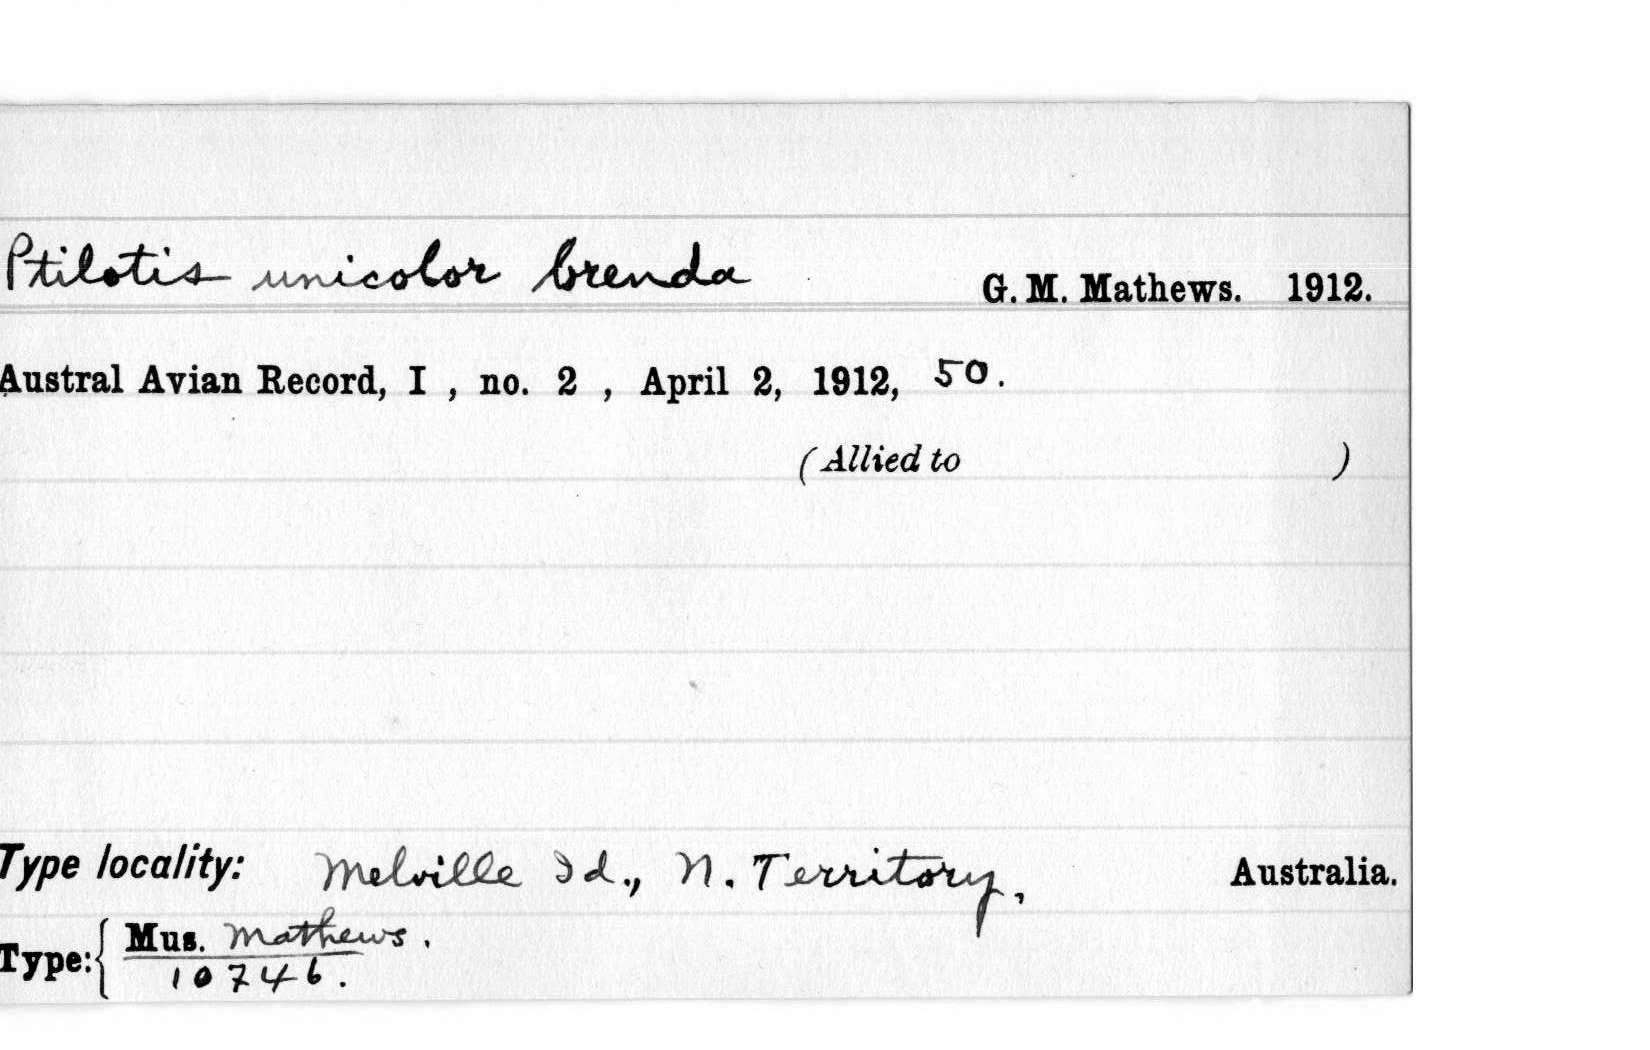 Ptilotis unicolor brenda G. M. Mathews. 1912.
Austral Avian Record, I , no. 2 , April 2, 1912, 50.
(Allied to )
Type locality: Melville Id., N. Territory, Australia.
Type: { Mus. Mathews.
10746.